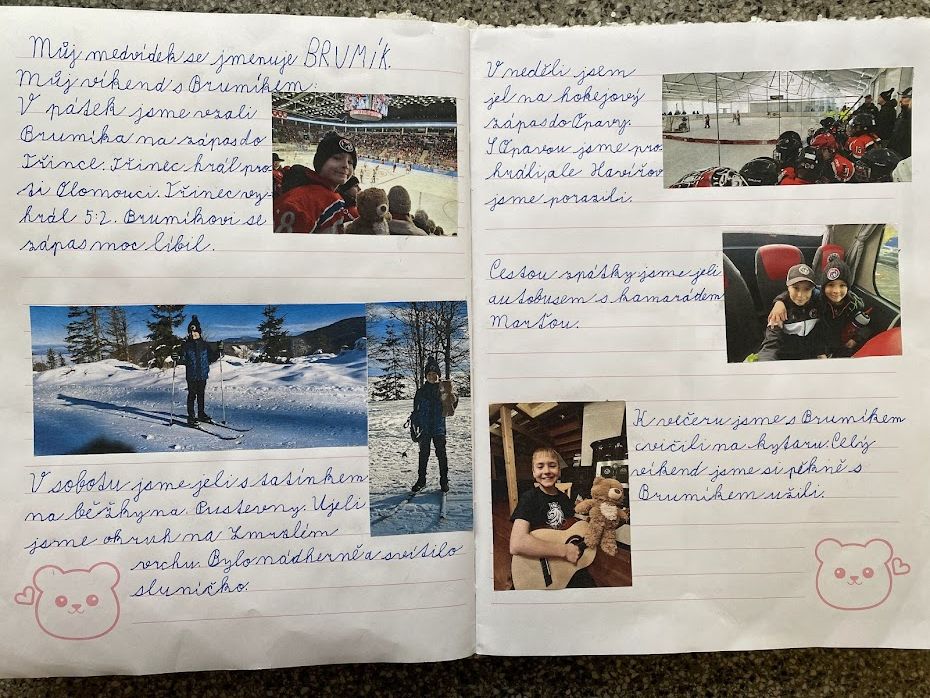 Můj medvídek se jmenuje BRUMÍK.
Můj víkend s Brumíkem:
V pátek jsme vzali
Brumíka na zápas do
Třince. Třinec hrál pro-
ti Olomouci. Třinec vy-
hrál 5:2. Brumíkovi se
zápas moc líbil.
V sobotu jsme jeli s tatínkem
na běžky na Pustevny. Ujeli
jsme okruh na Zmrzlém
vrchu. Bylo nádherně a svítilo
sluníčko.
V neděli jsem
jel na hokejový
zápas do Opavy.
S Opavou jsme pro-
hráli, ale Havířov
jsme porazili.
Cestou zpátky jsme jeli
autobusem s kamarádem
Marťou.
K večeru jsme s Brumíkem
cvičili na kytaru. Celý
víkend jsme si pěkně s
Brumíkem užili.